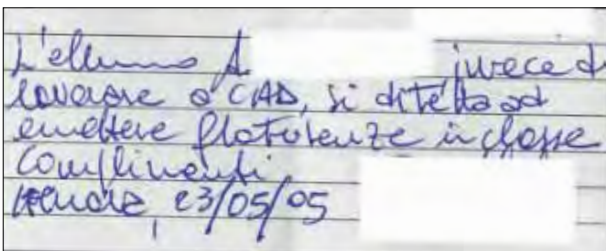 L'alunno A. invece di
lavorare a CAD, si diletta ad
emettere flatulenze in classe
Complimenti
23/05/05